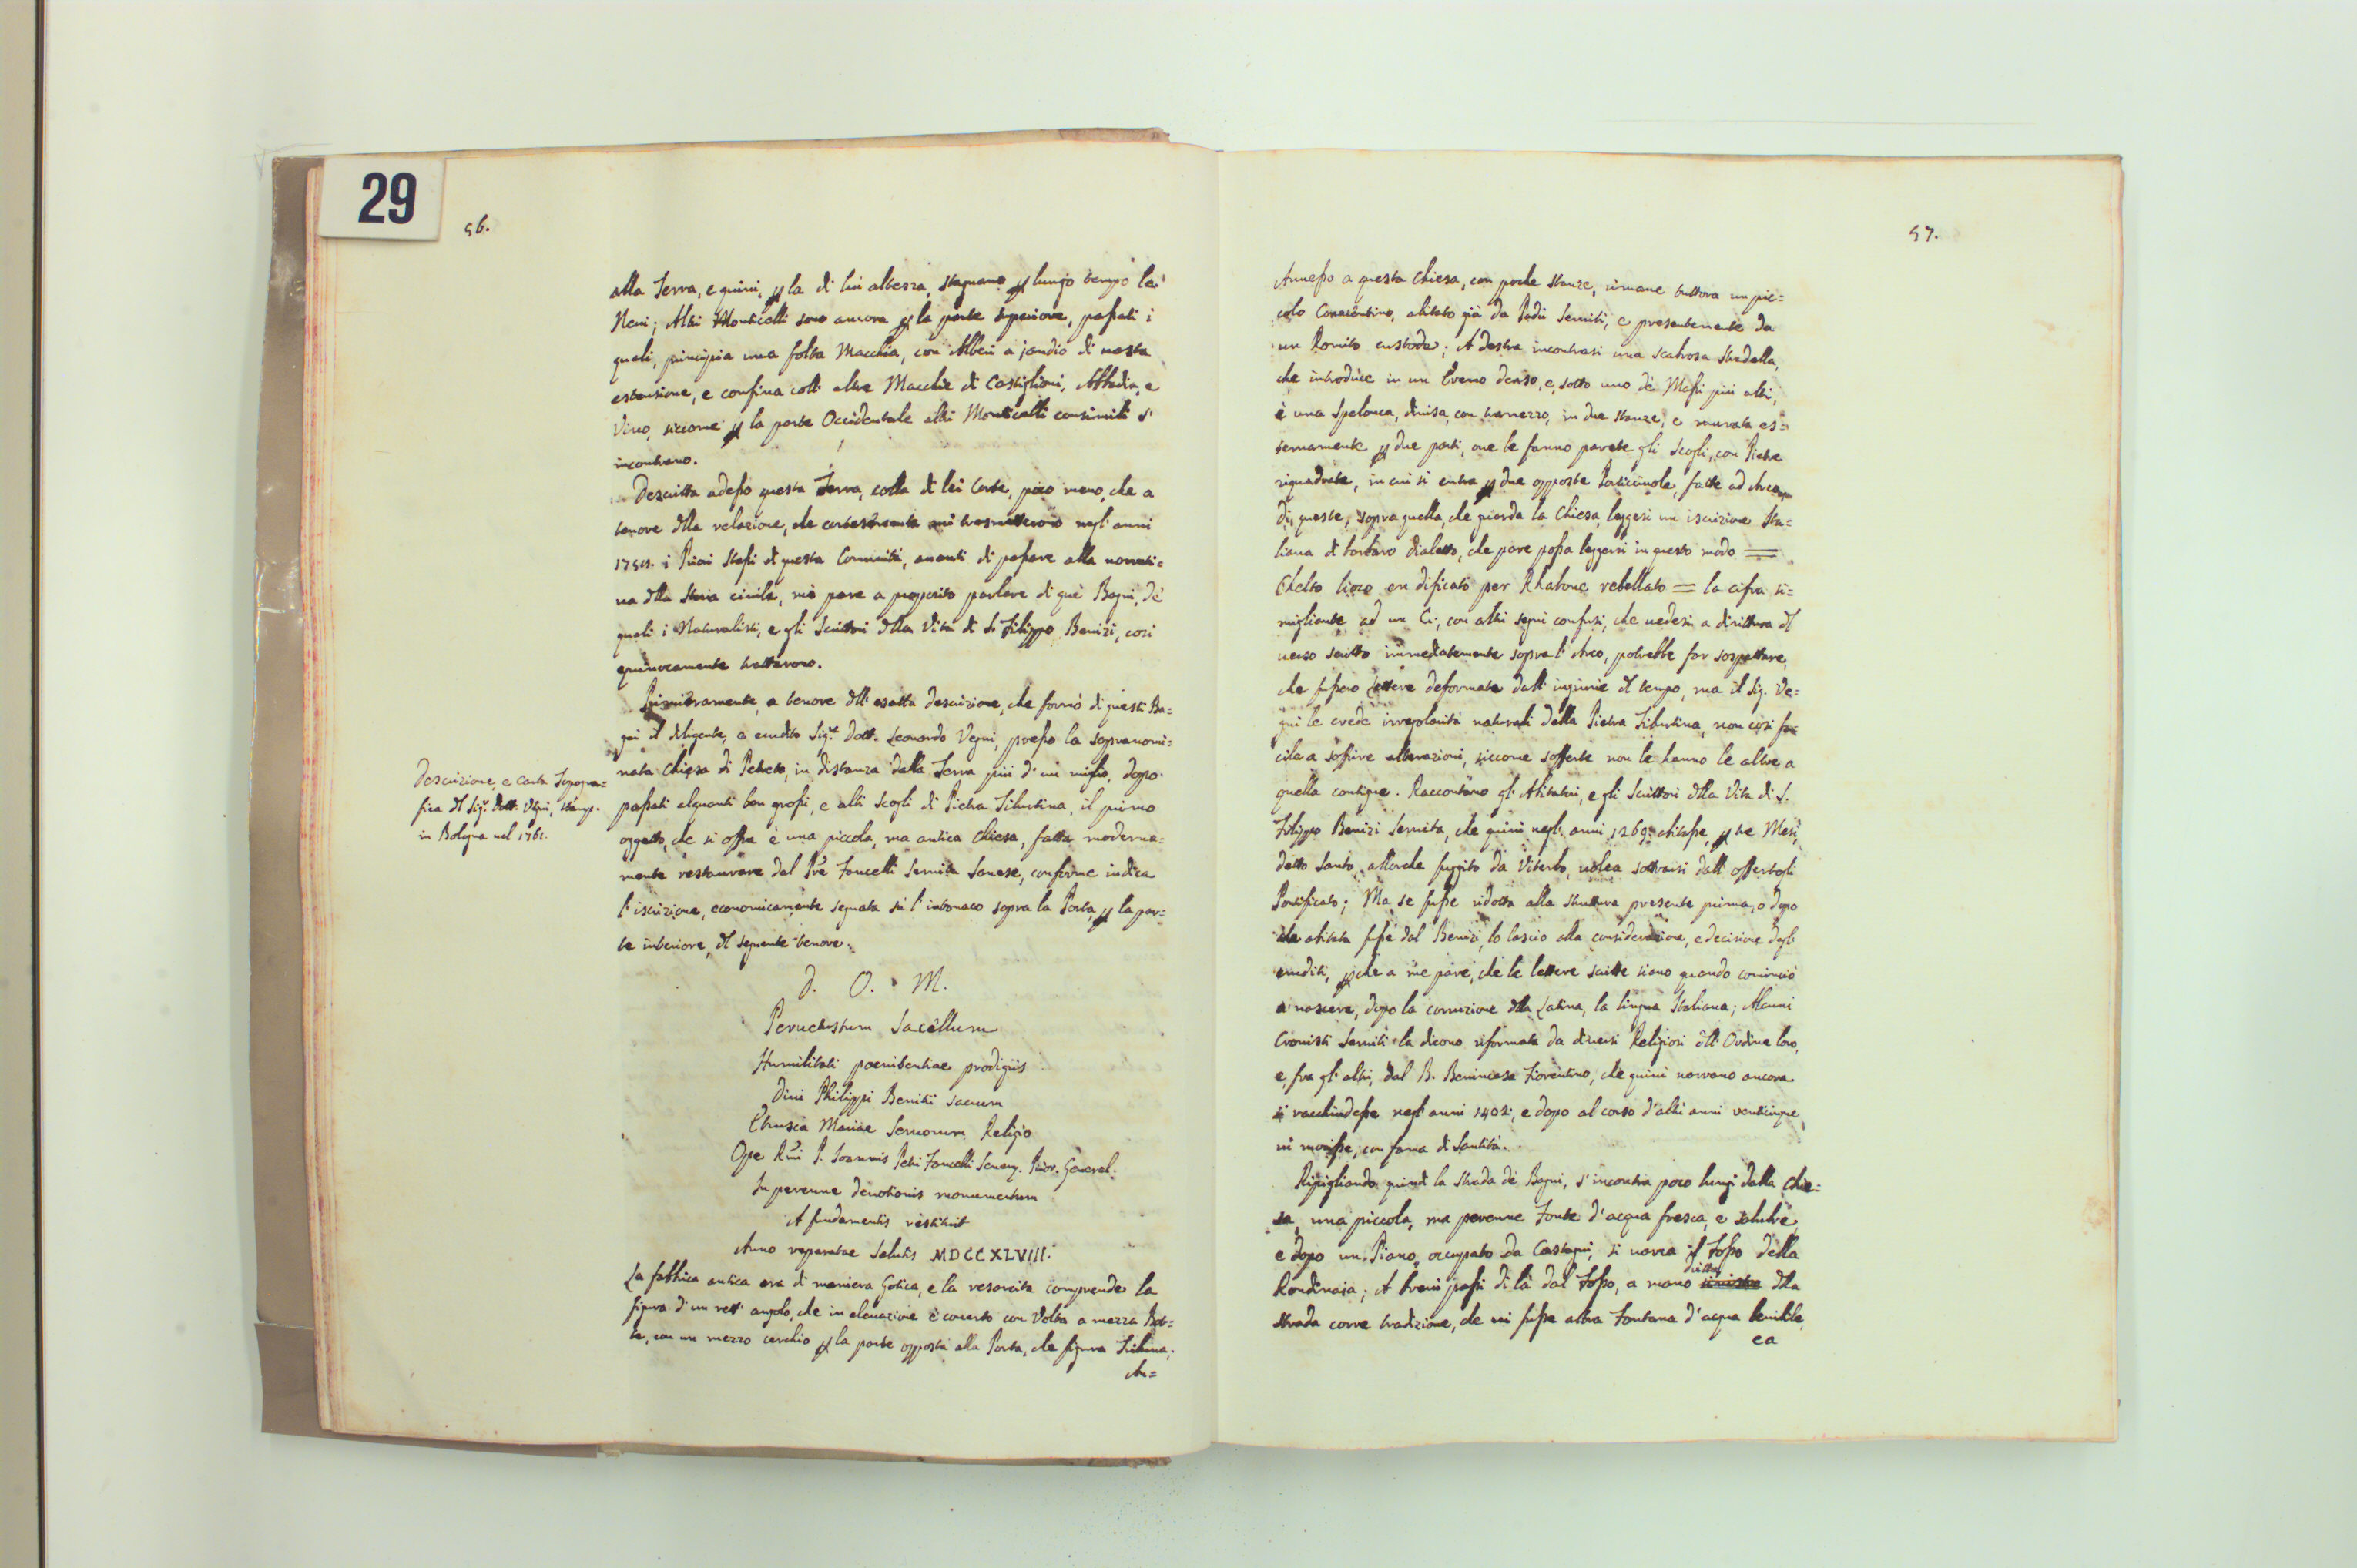 29
56.
alla Terra, e quivi, p la di lui altezza, stagnano p lungo tempo le
Nevi; Altri Monticelli sono ancora p la parte superiore, passati i
quali, principia una folta Macchia, con Alberi a jandio di vasta
estensione, e confina coll' altre Macchie di Castiglioni, Abbadia, e
Vivo, siccome p la parte Occidentale altri Monticelli consimili s'
incontrano.
Descritta adesso questa Terra, colla di lei Corte, poco meno, che a
tenore dlla relazione, che cortesemente mi trasmetterono negl' anni
i Priori Stessi di questa Comunità, avanti di passare alla narrati=
va dlla Storia civile, mi pare a proposito parlare di que' Bagni, de'
quali i Naturalisti, e gli Scrittori dlla Vita di S. Filippo Benizi, così
equivocamente trattarono.
Primieramente, a tenore dll' esatta descrizione, che formò di questi Ba=
gni il diligente, e erudito Sigr. Dott. Leonardo Vegni, presso la sopranomi=
nata Chiesa di Petreto, in distanza dalla Terra più d' un miglio, dopo
passati alquanti ben grossi, e alti Scogli di Pietra Tiburtina, il primo
oggetto, che si offra è una piccola, ma antica Chiesa, fatta moderna=
mente restaurare dal Pre Fancelli Servita Sanese, conforme indica
l' iscrizione, economicamente segnata sù l' intonaco sopra la Porta, p la par=
te interiore, dl seguente tenore:
Descrizione, e Carta Topogra=
fica dl Sigr. Dott. Vegni, stamp.
in Bologna nel 1761.
D. O. M.
Pervetustum Sacellum
Humilitati poenitentiae prodigiis
Divi Philippi Benitii sacrum
Etrusca Mariae Servorum Religio
Ope Rmi P. Ioannis Petri Fancelli Senen. Prior. General.
In perenne devotionis monumentum
A fundamentis restituit
Anno reparatae Salutis MDCCXLVIII.
La fabbrica antica era di maniera Gotica, e la resarcita comprende la
figura d' un rett' angolo, che in elevazione è coverto con Volta a mezza Bot=
te, con un mezzo cerchio p la parte opposta alla Porta, che figura Tribuna;
An=
57.
Annesso a questa Chiesa, con poche stanze, rimane tuttora un pic=
colo Conventino, abitato già da Padri Serviti, e presentemente da
un Romito custode; A destra incontrasi una scabrosa stradella,
che introduce in un Eremo denso, e, sotto uno de' Massi più alti,
è una Spelonca, divisa, con tramezzo, in due stanze, e murata es=
ternamente p due parti, ove le fanno parete gli Scogli, con Pietre
riquadrate, in cui si entra p due opposte Porticciuole, fatte ad Arco
di queste, sopra quella, che guarda la Chiesa, leggesi un iscrizione Ita=
liana di barbaro dialetto, che pare possa leggersi in questo modo =
Chelto lioco en dificato per Rhabone rebellato = la cifra si=
migliante ad un C., con altri segni confusi, che vedesi a dirittura dl
verso scritto immediatemente sopra l' Arco, potrebbe far sospettare,
che fussero Lettere deformate dall' ingiurie dl tempo, ma il Sig. Ve=
gni le crede irregolarità naturali della Pietra Tiburtina, non così fa=
cile a soffrire alterazioni, siccome sofferte non le hanno le altre a
quella contigue. Raccontano gl' Abitatori, e gli Scrittori dlla Vita di S.
Filippo Benizi Servita, che quivi negl' anni 1269. abitasse, p tre Mesi,
detto Santo, allorche fuggito da Viterbo, volea sottrarsi dall' offertogli
Pontificato; Ma se fusse ridotta alla struttura presente prima, o dopo
che abitata fusse dal Benizi, lo lascio alla considerazione, e decisione degli
eruditi, pche a me pare, che le lettere scritte siano quando cominciò
a nascere, dopo la corruzione dlla Latina, la lingua Italiana; Alcuni
Cronisti Serviti la dicono riformata da diversi Religiosi dll' Ordine loro,
e, fra gl' altri, dal B. Benincasa Fiorentino, che quivi narrano ancora
si racchiudesse negl' anni 1402., e dopo al corso d' altri anni venticinque
vi morisse, con fama di Santità.
Ripigliando quindi la Strada de' Bagni, s' incontra poco lungi dalla Chie=
sa, una piccola, ma perenne Fonte d' acqua fresca, e salubre,
e dopo un Piano, occupato da Castagni, si varca il Fosso della
Rondinaia; A brevi passi di là dal Fosso, a mano dritta dlla
strada corre tradizione, che vi fusse altra Fontana d' acqua bevibile,
ea